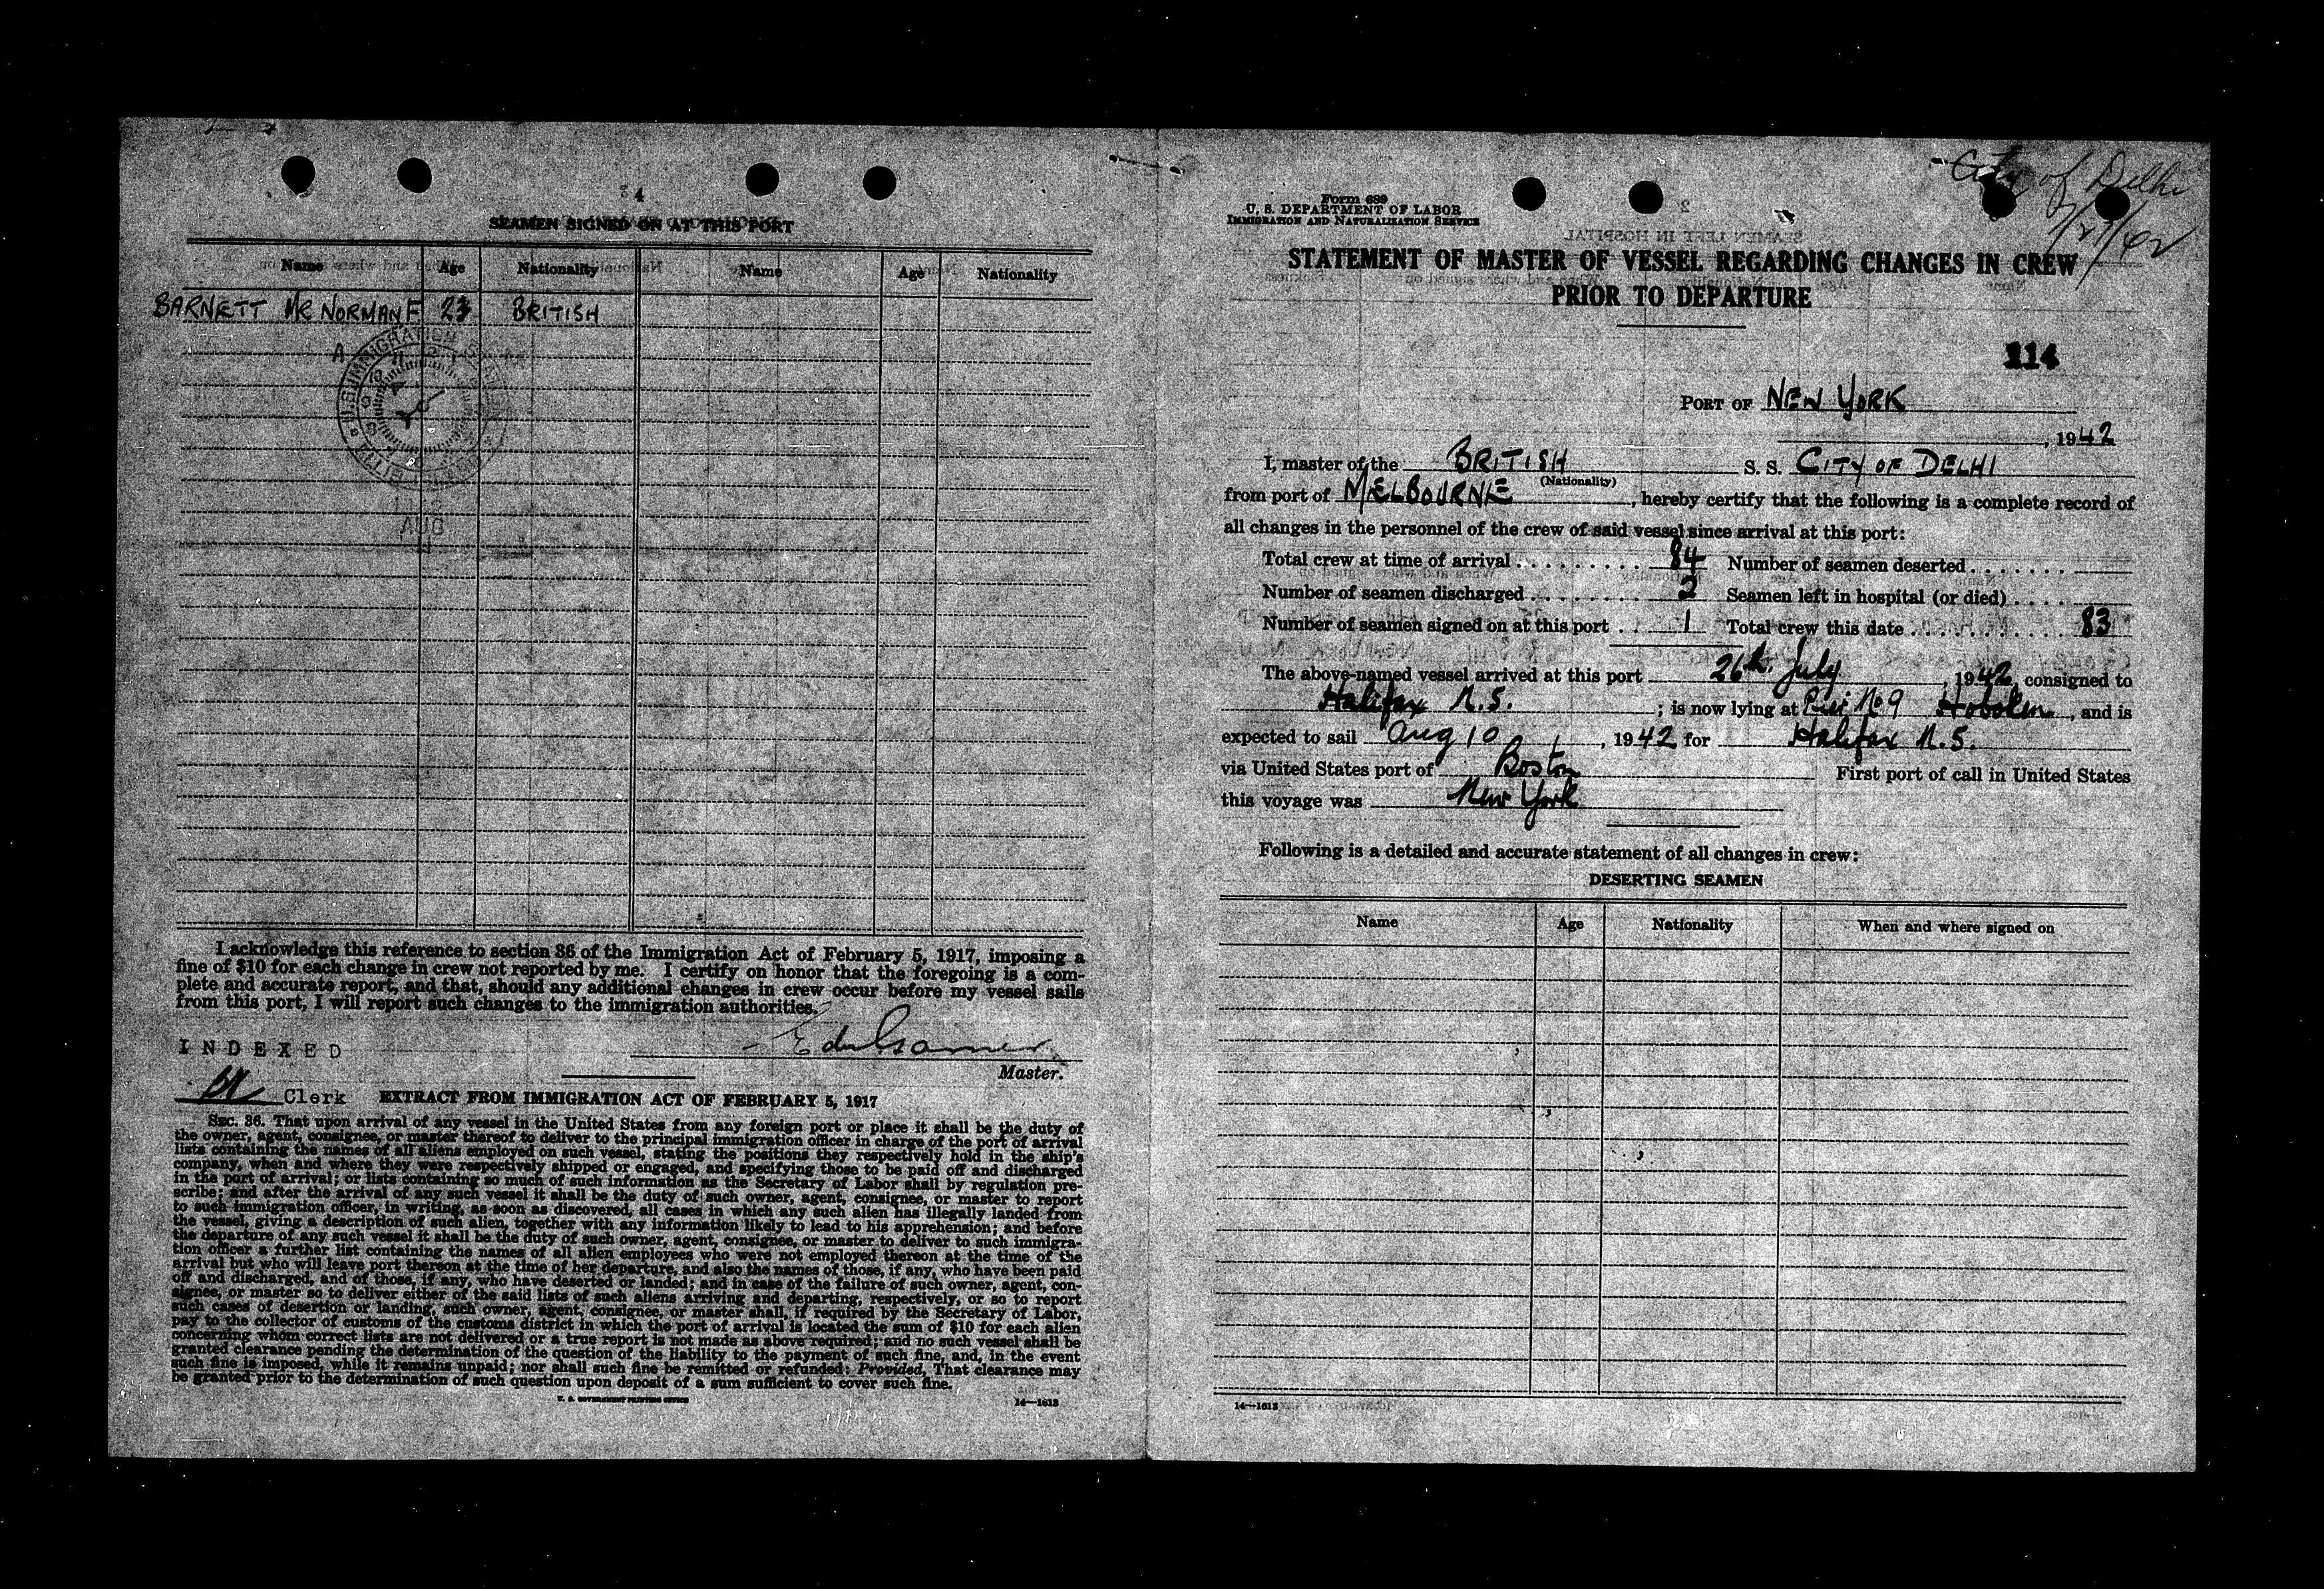 4
SEAMEN SIGNED ON AT THIS PORT
Name Age Nationality Name Age Nationality
BARNETT MR NORMAN F 23 BRITISH
U.S. IMMIGRATION
AUG
I acknowledge this reference to section 36 of the Immigration Act of February 5, 1917, imposing a
fine of $10 for each change in crew not reported by me. I certify on honor that the foregoing is a com-
plete and accurate report, and that, should any additional changes in crew occur before my vessel sails
from this port, I will report such changes to the immigration authorities.
INDEXED
Master.
Clerk
EXTRACT FROM IMMIGRATION ACT OF FEBRUARY 5, 1917
SEC. 36. That upon arrival of any vessel in the United States from any foreign port or place it shall be the duty of
the owner, agent, consignee, or master thereof to deliver to the principal immigration officer in charge of the port of arrival
lists containing the names of all aliens employed on such vessel, stating the positions they respectively hold in the ship's
company, when and where they were respectively shipped or engaged, and specifying those to be paid off and discharged
in the port of arrival; or lists containing so much of such information as the Secretary of Labor shall by regulation pre-
scribe; and after the arrival of any such vessel it shall be the duty of such owner, agent, consignee, or master to report
to such immigration officer, in writing, as soon as discovered, all cases in which any such alien has illegally landed from
the vessel, giving a description of such alien, together with any information likely to lead to his apprehension; and before
the departure of any such vessel it shall be the duty of such owner, agent, consignee, or master to deliver to such immigra-
tion officer a further list containing the names of all alien employees who were not employed thereon at the time of the
arrival but who will leave port thereon at the time of her departure, and also the names of those, if any, who have been paid
off and discharged, and of those, if any, who have deserted or landed; and in case of the failure of such owner, agent, con-
signee, or master so to deliver either of the said lists of such aliens arriving and departing, respectively, or so to report
such cases of desertion or landing, such owner, agent, consignee, or master shall, if required by the Secretary of Labor,
pay to the collector of customs of the customs district in which the port of arrival is located the sum of $10 for each alien
concerning whom correct lists are not delivered or a true report is not made as above required; and no such vessel shall be
granted clearance pending the determination of the question of the liability to the payment of such fine, and, in the event
such fine is imposed, while it remains unpaid; nor shall such fine be remitted or refunded: Provided, That clearance may
be granted prior to the determination of such question upon deposit of a sum sufficient to cover such fine.
U. S. GOVERNMENT PRINTING OFFICE 14—1613
City of Delhi
7/27/42
Form 689
U. S. DEPARTMENT OF LABOR
IMMIGRATION AND NATURALIZATION SERVICE
STATEMENT OF MASTER OF VESSEL REGARDING CHANGES IN CREW
PRIOR TO DEPARTURE
114
PORT OF NEW YORK
, 1942
I, master of the BRITISH S. S. CITY OF DELHI
(Nationality)
from port of MELBOURNE, hereby certify that the following is a complete record of
all changes in the personnel of the crew of said vessel since arrival at this port:
Total crew at time of arrival 84 Number of seamen deserted
Number of seamen discharged 2 Seamen left in hospital (or died)
Number of seamen signed on at this port 1 Total crew this date 83
The above-named vessel arrived at this port 26th July, 1942, consigned to
Halifax N.S. ; is now lying at Pier No 9 Hoboken, and is
expected to sail Aug 10, 1942 for Halifax N.S.
via United States port of Boston First port of call in United States
this voyage was New York
Following is a detailed and accurate statement of all changes in crew:
DESERTING SEAMEN
Name Age Nationality When and where signed on
14—1613